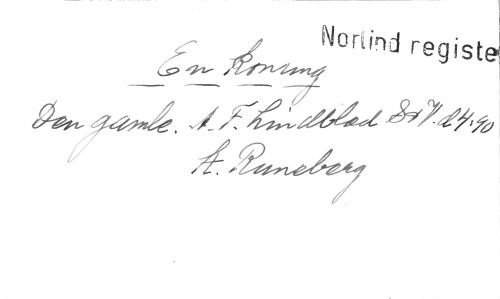 Norlind registe
En konung
Den gamle. A. F. Lindblad S:V. d 4:90
A. Runeberg